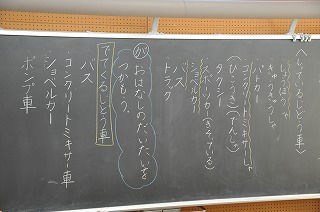 〈しっているじどう車〉
しょうぼうしゃ
きゅうきゅうしゃ
パトカー
コンクリートミキサーしゃ
(ひこうき)(でんしゃ)
タクシー
スポーツカー(きそっている)
ショベルカー
バス
トラック
が おはなしのだいたいを
つかもう。
でてくるじどう車
バス
コンクリートミキサー車
ショベルカー
ポンプ車